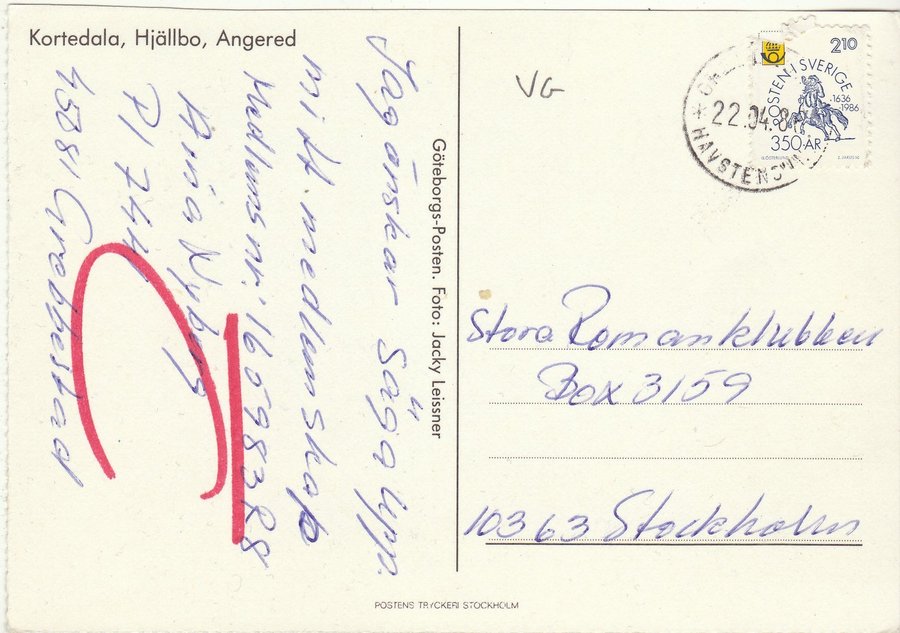 Kortedala, Hjällbo, Angered
Jag önskar säga upp
mitt medlemskap
Medlemsnr: 16059838
Anna Nyberg
Pl 744
45081 Grebbestad
Göteborgs-Posten. Foto: Jacky Leissner
VG
22.04.8
HAVSTENS
POSTEN I SVERIGE
210
1636
1986
350 ÅR
Stora Romanklubben
Box 3159
10363 Stockholm
POSTENS TRYCKERI STOCKHOLM